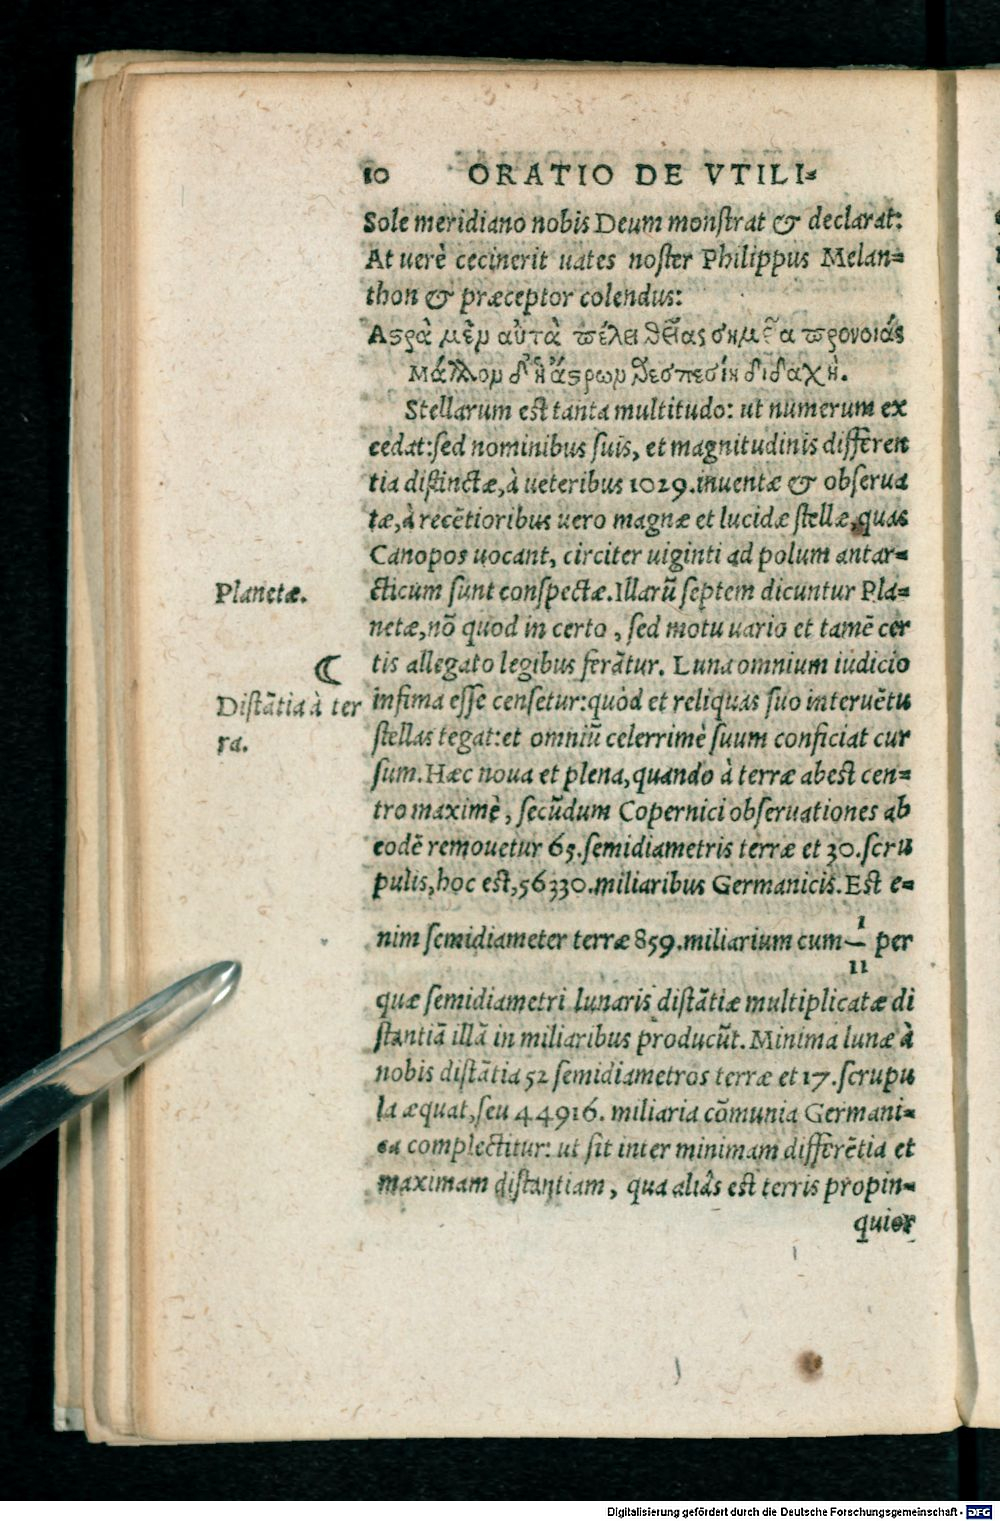 10 ORATIO DE VTILI-
Sole meridiano nobis Deum monstrat & declarat:
At uerè cecinerit uates noster Philippus Melan-
thon & præceptor colendus:
Αϛρὰ μὲν αὐτὰ πέλει θείας σημεῖα προνοιάς
Μάλλον δ' ἢ ἄϛρων θεσπεσίη διδαχή.
Stellarum est tanta multitudo: ut numerum ex
cedat: sed nominibus suis, et magnitudinis differen
tia distinctæ, à ueteribus 1029. inuentæ & obserua
tæ, à recẽtioribus uero magnæ et lucidæ stellæ, quas
Canopos uocant, circiter uiginti ad polum antar-
cticum sunt conspectæ. Illarũ septem dicuntur Pla-
Planetæ.
netæ, nõ quod in certo, sed motu uario et tamẽ cer
tis allegato legibus ferãtur. Luna omnium iudicio
☾
infima esse censetur: quòd et reliquas suo interuẽtu
Distãtia à ter
stellas tegat: et omniũ celerrimè suum conficiat cur
ra.
sum. Hæc noua et plena, quando à terræ abest cen-
tro maximè, secũdum Copernici obseruationes ab
eodẽ remouetur 65. semidiametris terræ et 30. scru
pulis, hoc est, 56330. miliaribus Germanicis. Est e-
nim semidiameter terræ 859. miliarium cum 1/11 per
quæ semidiametri lunaris distãtiæ multiplicatæ di
stantiã illã in miliaribus producũt. Minima lunæ à
nobis distãtia 52 semidiametros terræ et 17. scrupu
la æquat, seu 44916. miliaria cõmunia Germani-
ca complectitur: ut sit inter minimam differẽtia et
maximam distantiam, qua aliàs est terris propin-
quior
Digitalisierung gefördert durch die Deutsche Forschungsgemeinschaft - DFG